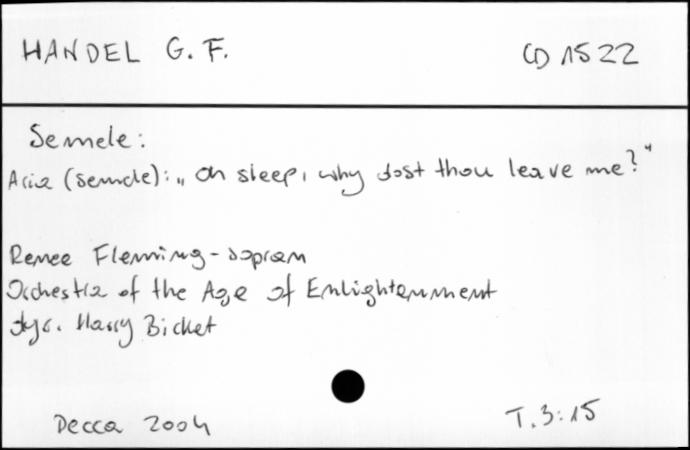 HANDEL G. F.
CD 1522
Semele:
Aria (Semele): „Oh sleep, why dost thou leave me?"
Renee Flemming - sopran
Orchestra of the Age of Enlightenment
dyr. Harry Bicket
Decca 2004
T. 3:15